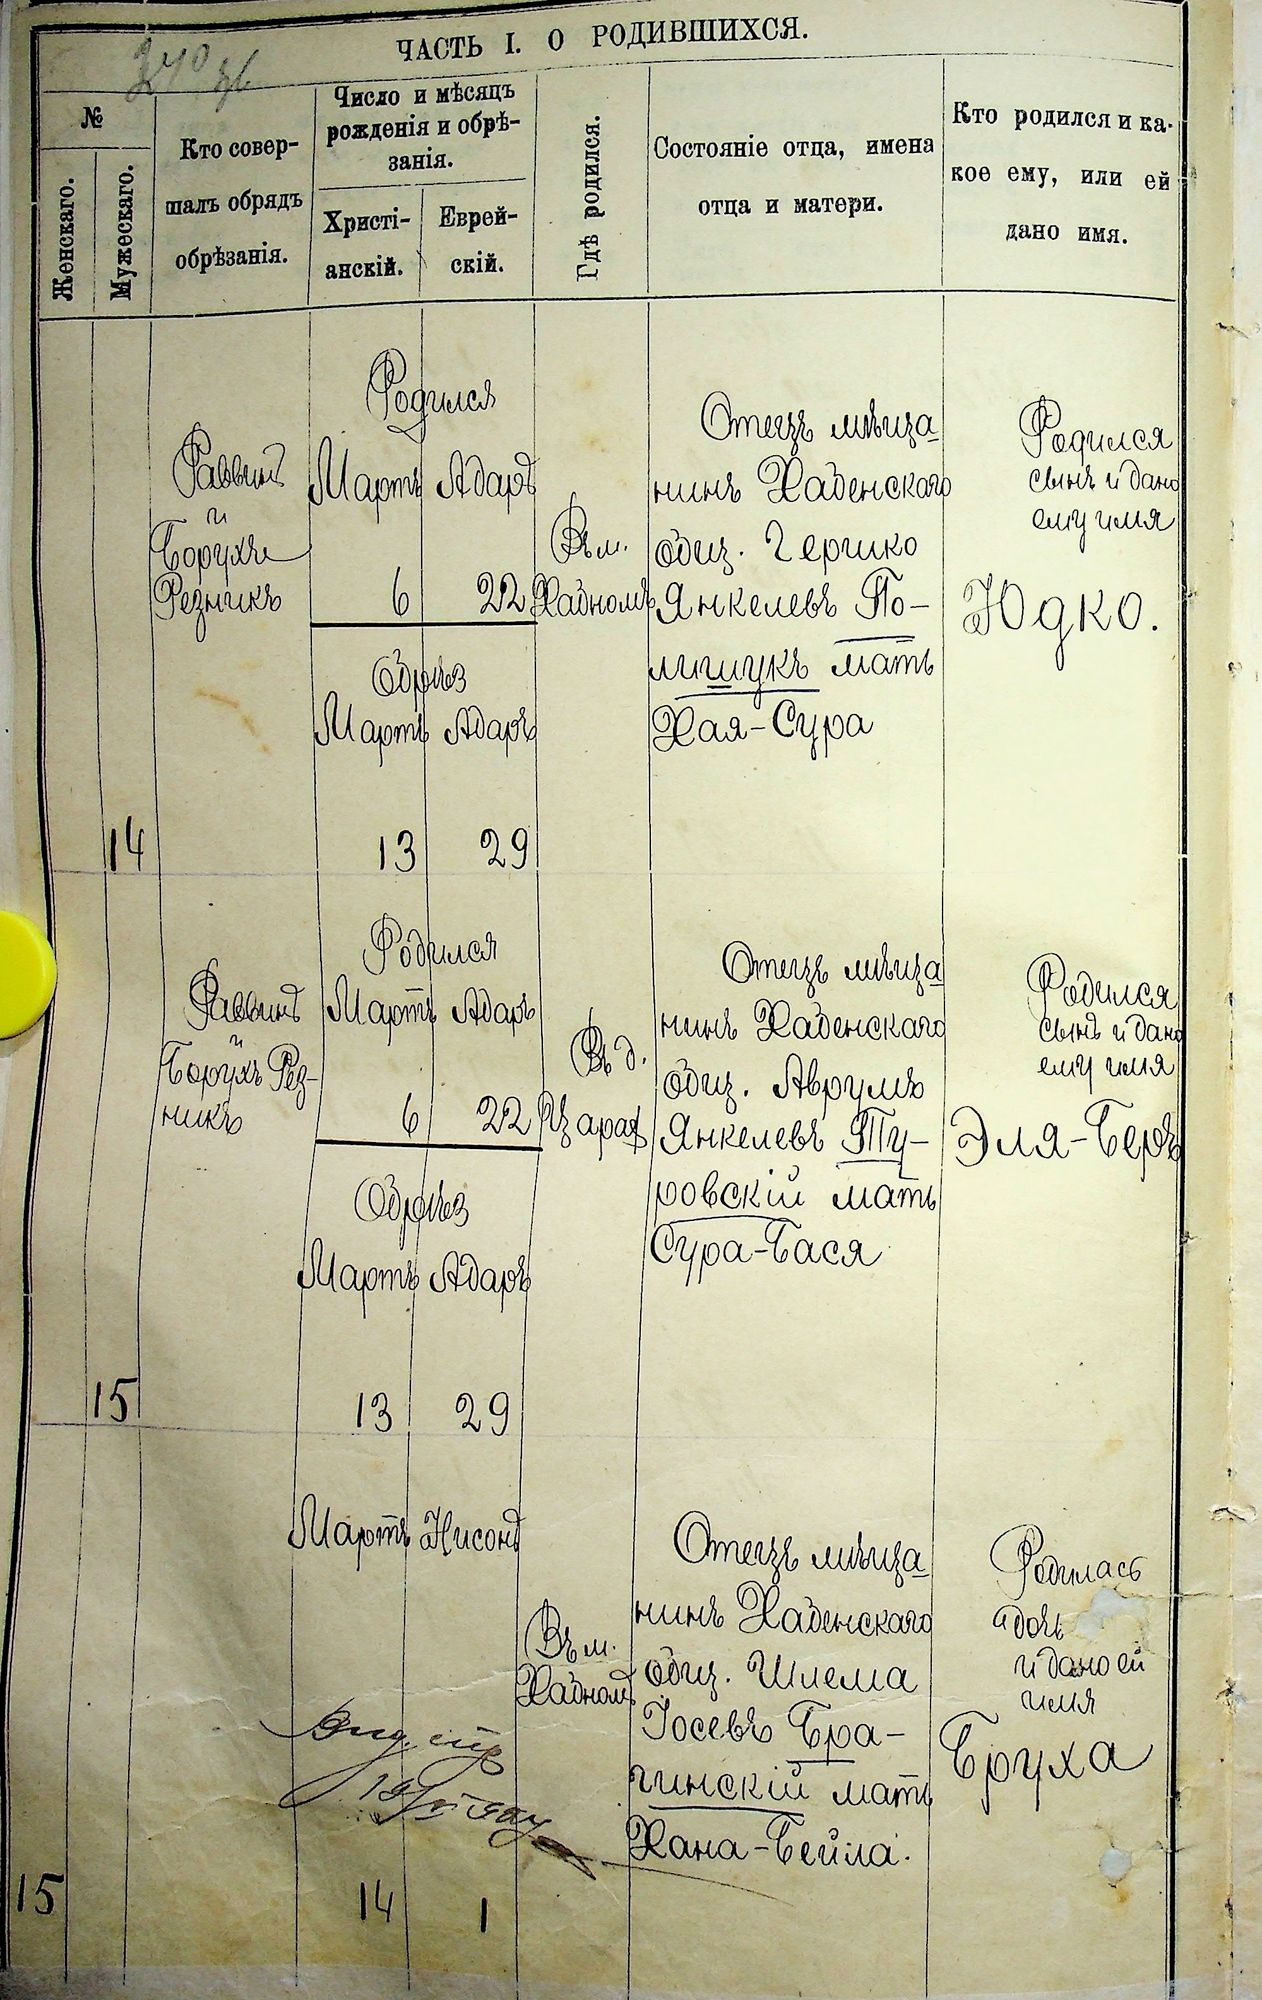 ЧАСТЬ I. О РОДИВШИХСЯ.
№
Женскаго.
Мужескаго.
Кто совер-
шалъ обрядъ
обрѣзанія.
Число и мѣсяцъ
рожденія и обрѣ-
занія.
Христі-
анскій.
Еврей-
скій.
Гдѣ родился.
Состояніе отца, имена
отца и матери.
Кто родился и ка-
кое ему, или ей
дано имя.
14
Раввинъ
и
Борухъ
Резникъ
Родился
Мартъ Адаръ
6 22
Обрѣз
Мартъ Адаръ
13 29
Въ м.
Хабномъ
Отецъ мѣща
нинъ Хабенскаго
общ. Гершко
Янкелевъ По-
лищукъ мать
Хая-Сура
Родился
сынъ и дано
ему имя
Юдко.
15
Раввинъ
и
Борухъ Рез-
никъ
Родился
Мартъ Адаръ
6 22
Обрѣз
Мартъ Адаръ
13 29
Въ д.
Отецъ мѣща
нинъ Хабенскаго
общ. Аврумъ
Янкелевъ Ту-
ровскій мать
Сура-Бася
Родился
сынъ и дано
ему имя
Эля-Беръ
15
Мартъ Нисонъ
14 1
Въ м.
Хабномъ
Отецъ мѣща
нинъ Хабенскаго
общ. Шлема
Іосевъ Бра-
гинскій мать
Хана-Бейла.
Родилась
дочь
и дано ей
имя
Бруха